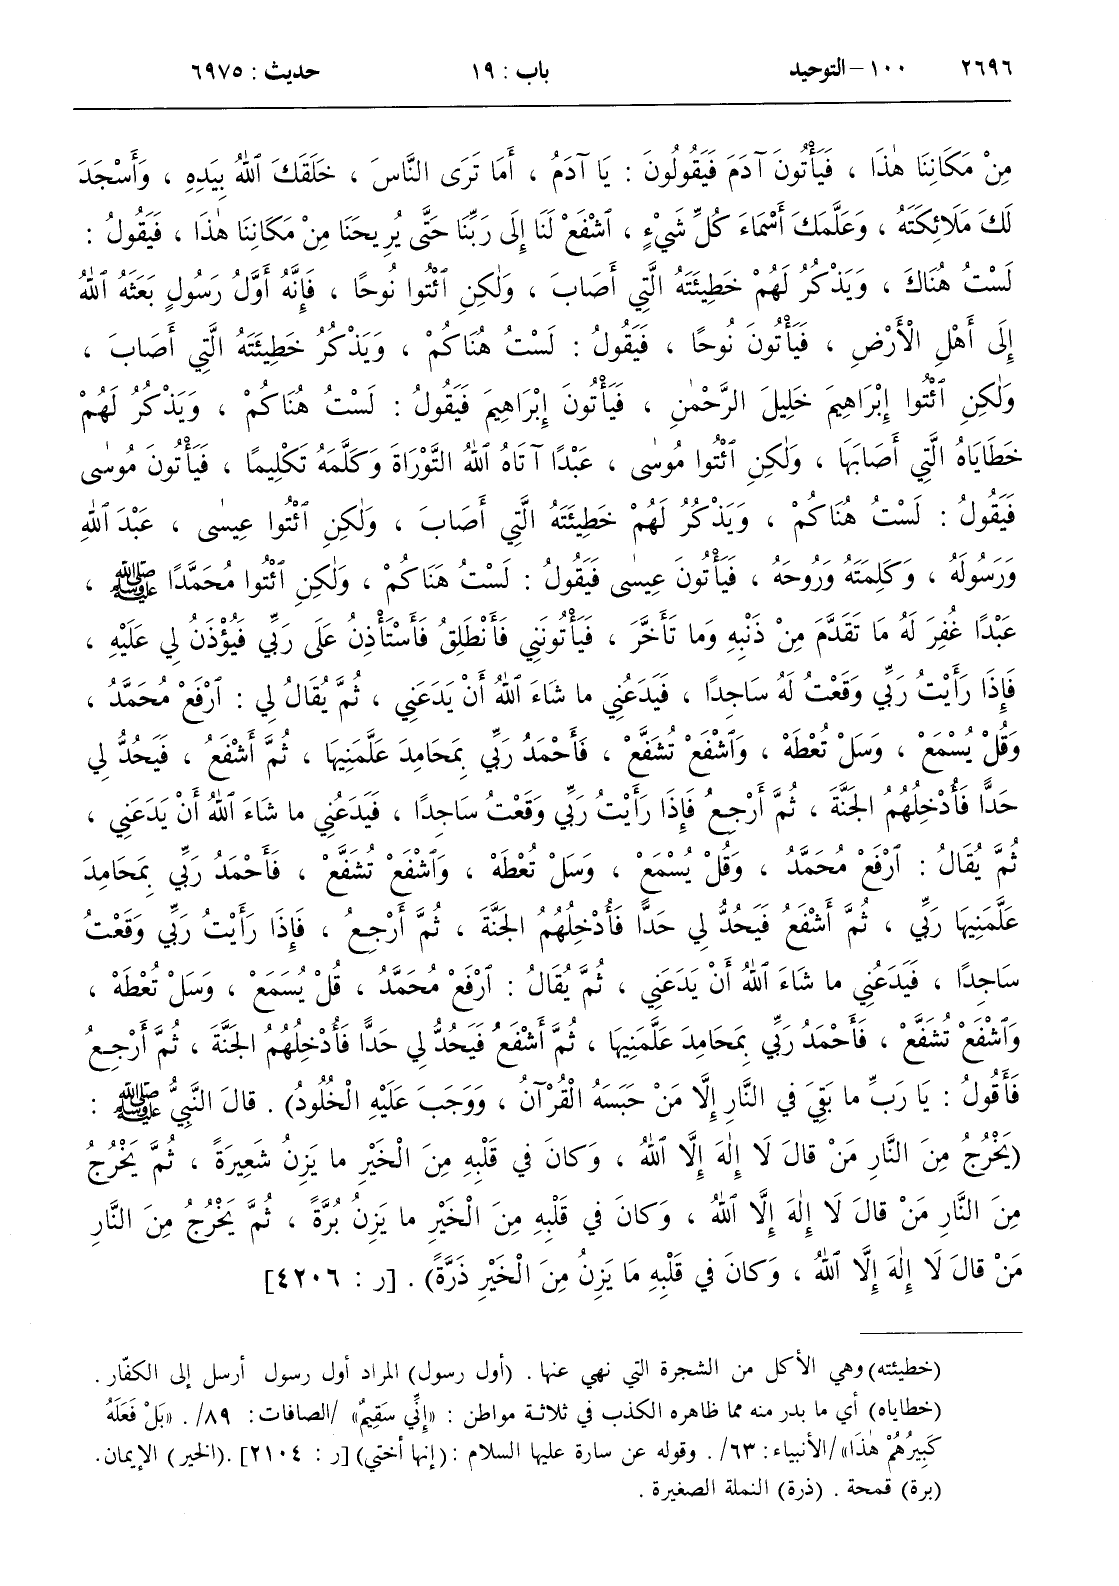 ٢٦٩٦ ١٠٠ – التوحيد باب : ١٩ حديث : ٦٩٧٥
مِنْ مَكَانِنَا هٰذَا ، فَيَأْتُونَ آدَمَ فَيَقُولُونَ : يَا آدَمُ ، أَمَا تَرَى النَّاسَ ، خَلَقَكَ ٱللّٰهُ بِيَدِهِ ، وَأَسْجَدَ
لَكَ مَلَائِكَتَهُ ، وَعَلَّمَكَ أَسْمَاءَ كُلِّ شَيْءٍ ، ٱشْفَعْ لَنَا إِلَى رَبِّنَا حَتَّى يُرِيحَنَا مِنْ مَكَانِنَا هٰذَا ، فَيَقُولُ :
لَسْتُ هُنَاكَ ، وَيَذْكُرُ لَهُمْ خَطِيئَتَهُ الَّتِي أَصَابَ ، وَلٰكِنِ ٱئْتُوا نُوحًا ، فَإِنَّهُ أَوَّلُ رَسُولٍ بَعَثَهُ ٱللّٰهُ
إِلَى أَهْلِ الْأَرْضِ ، فَيَأْتُونَ نُوحًا ، فَيَقُولُ : لَسْتُ هُنَاكُمْ ، وَيَذْكُرُ خَطِيئَتَهُ الَّتِي أَصَابَ ،
وَلٰكِنِ ٱئْتُوا إِبْرَاهِيمَ خَلِيلَ الرَّحْمٰنِ ، فَيَأْتُونَ إِبْرَاهِيمَ فَيَقُولُ : لَسْتُ هُنَاكُمْ ، وَيَذْكُرُ لَهُمْ
خَطَايَاهُ الَّتِي أَصَابَهَا ، وَلٰكِنِ ٱئْتُوا مُوسٰى ، عَبْدًا آتَاهُ ٱللّٰهُ التَّوْرَاةَ وَكَلَّمَهُ تَكْلِيمًا ، فَيَأْتُونَ مُوسٰى
فَيَقُولُ : لَسْتُ هُنَاكُمْ ، وَيَذْكُرُ لَهُمْ خَطِيئَتَهُ الَّتِي أَصَابَ ، وَلٰكِنِ ٱئْتُوا عِيسٰى ، عَبْدَ ٱللّٰهِ
وَرَسُولَهُ ، وَكَلِمَتَهُ وَرُوحَهُ ، فَيَأْتُونَ عِيسٰى فَيَقُولُ : لَسْتُ هُنَاكُمْ ، وَلٰكِنِ ٱئْتُوا مُحَمَّدًا ﷺ ،
عَبْدًا غُفِرَ لَهُ مَا تَقَدَّمَ مِنْ ذَنْبِهِ وَما تَأَخَّرَ ، فَيَأْتُونَنِي فَأَنْطَلِقُ فَأَسْتَأْذِنُ عَلَى رَبِّي فَيُؤْذَنُ لِي عَلَيْهِ ،
فَإِذَا رَأَيْتُ رَبِّي وَقَعْتُ لَهُ سَاجِدًا ، فَيَدَعُنِي ما شَاءَ ٱللّٰهُ أَنْ يَدَعَنِي ، ثُمَّ يُقَالُ لِي : ٱرْفَعْ مُحَمَّدُ ،
وَقُلْ يُسْمَعْ ، وَسَلْ تُعْطَهْ ، وَٱشْفَعْ تُشَفَّعْ ، فَأَحْمَدُ رَبِّي بِمَحَامِدَ عَلَّمَنِيهَا ، ثُمَّ أَشْفَعُ ، فَيَحُدُّ لِي
حَدًّا فَأُدْخِلُهُمُ الجَنَّةَ ، ثُمَّ أَرْجِعُ فَإِذَا رَأَيْتُ رَبِّي وَقَعْتُ سَاجِدًا ، فَيَدَعُنِي ما شَاءَ ٱللّٰهُ أَنْ يَدَعَنِي ،
ثُمَّ يُقَالُ : ٱرْفَعْ مُحَمَّدُ ، وَقُلْ يُسْمَعْ ، وَسَلْ تُعْطَهْ ، وَٱشْفَعْ تُشَفَّعْ ، فَأَحْمَدُ رَبِّي بِمَحَامِدَ
عَلَّمَنِيهَا رَبِّي ، ثُمَّ أَشْفَعُ فَيَحُدُّ لِي حَدًّا فَأُدْخِلُهُمُ الجَنَّةَ ، ثُمَّ أَرْجِعُ ، فَإِذَا رَأَيْتُ رَبِّي وَقَعْتُ
سَاجِدًا ، فَيَدَعُنِي ما شَاءَ ٱللّٰهُ أَنْ يَدَعَنِي ، ثُمَّ يُقَالُ : ٱرْفَعْ مُحَمَّدُ ، قُلْ يُسْمَعْ ، وَسَلْ تُعْطَهْ ،
وَٱشْفَعْ تُشَفَّعْ ، فَأَحْمَدُ رَبِّي بِمَحَامِدَ عَلَّمَنِيهَا ، ثُمَّ أَشْفَعُ فَيَحُدُّ لِي حَدًّا فَأُدْخِلُهُمُ الجَنَّةَ ، ثُمَّ أَرْجِعُ
فَأَقُولُ : يَا رَبِّ ما بَقِيَ فِي النَّارِ إِلَّا مَنْ حَبَسَهُ الْقُرْآنُ ، وَوَجَبَ عَلَيْهِ الْخُلُودُ) . قالَ النَّبِيُّ ﷺ :
(يَخْرُجُ مِنَ النَّارِ مَنْ قالَ لَا إِلٰهَ إِلَّا ٱللّٰهُ ، وَكانَ فِي قَلْبِهِ مِنَ الْخَيْرِ ما يَزِنُ شَعِيرَةً ، ثُمَّ يَخْرُجُ
مِنَ النَّارِ مَنْ قالَ لَا إِلٰهَ إِلَّا ٱللّٰهُ ، وَكانَ فِي قَلْبِهِ مِنَ الْخَيْرِ ما يَزِنُ بُرَّةً ، ثُمَّ يَخْرُجُ مِنَ النَّارِ
مَنْ قالَ لَا إِلٰهَ إِلَّا ٱللّٰهُ ، وَكانَ فِي قَلْبِهِ مَا يَزِنُ مِنَ الْخَيْرِ ذَرَّةً) . [ر : ٤٢٠٦]
(خطيئته) وهي الأكل من الشجرة التي نهي عنها . (أول رسول) المراد أول رسول أرسل إلى الكفّار .
(خطاياه) أي ما بدر منه مما ظاهره الكذب في ثلاثة مواطن : «إِنِّي سَقِيمٌ» /الصافات : ٨٩/ . «بَلْ فَعَلَهُ
كَبِيرُهُمْ هٰذَا»/الأنبياء : ٦٣/ . وقوله عن سارة عليها السلام : (إنها أختي) [ر : ٢١٠٤] . (الخير) الإيمان.
(برة) قمحة . (ذرة) النملة الصغيرة .